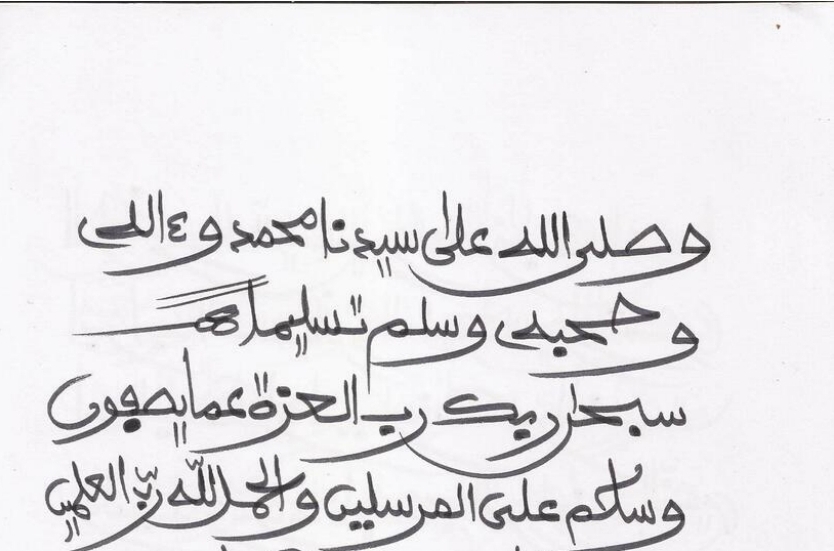 وصلى الله على سيدنا محمد وءاله
وصحبه وسلم تسليما
سبحن ربك رب العزة عما يصفون
وسلم على المرسلين والحمد لله رب العلمين